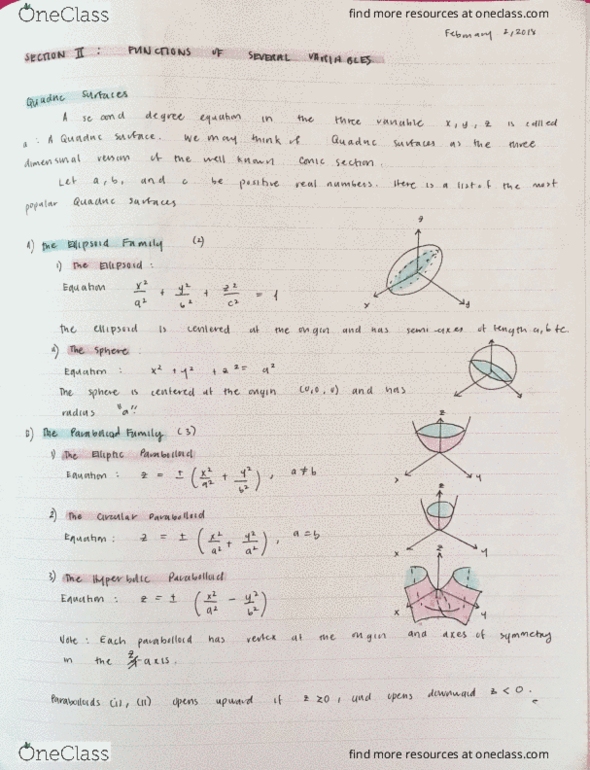 OneClass
find more resources at oneclass.com
February 2, 2018
SECTION II : FUNCTIONS OF SEVERAL VARIABLES
Quadric Surfaces
A second degree equation in the three variable x, y, z is called
a : A Quadric Surface. We may think of Quadric Surfaces as the three
dimensional version of the well known conic section.
Let a, b, and c be positive real numbers. Here is a list of the most
popular Quadric Surfaces
A) The Ellipsoid Family (2)
1) The Ellipsoid :
Equation x²/a² + y²/b² + z²/c² = 1
The ellipsoid is centered at the origin and has semi-axes of length a, b & c.
2) The Sphere :
Equation : x² + y² + z² = a²
The sphere is centered at the origin (0, 0, 0) and has
radius "a".
B) The Paraboloid Family (3)
1) The Elliptic Paraboloid
Equation : z = ± (x²/a² + y²/b²), a ≠ b
2) The Circular Paraboloid
Equation : z = ± (x²/a² + y²/a²), a = b
3) The Hyperbolic Paraboloid
Equation : z = ± (x²/a² - y²/b²)
Note : Each paraboloid has vertex at the origin and axes of symmetry
in the z-axis.
Paraboloids (i), (ii) opens upward if z ≥ 0, and opens downward z < 0.
OneClass
find more resources at oneclass.com